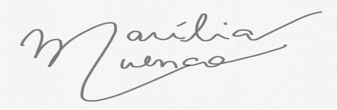 Marília
Cuenca